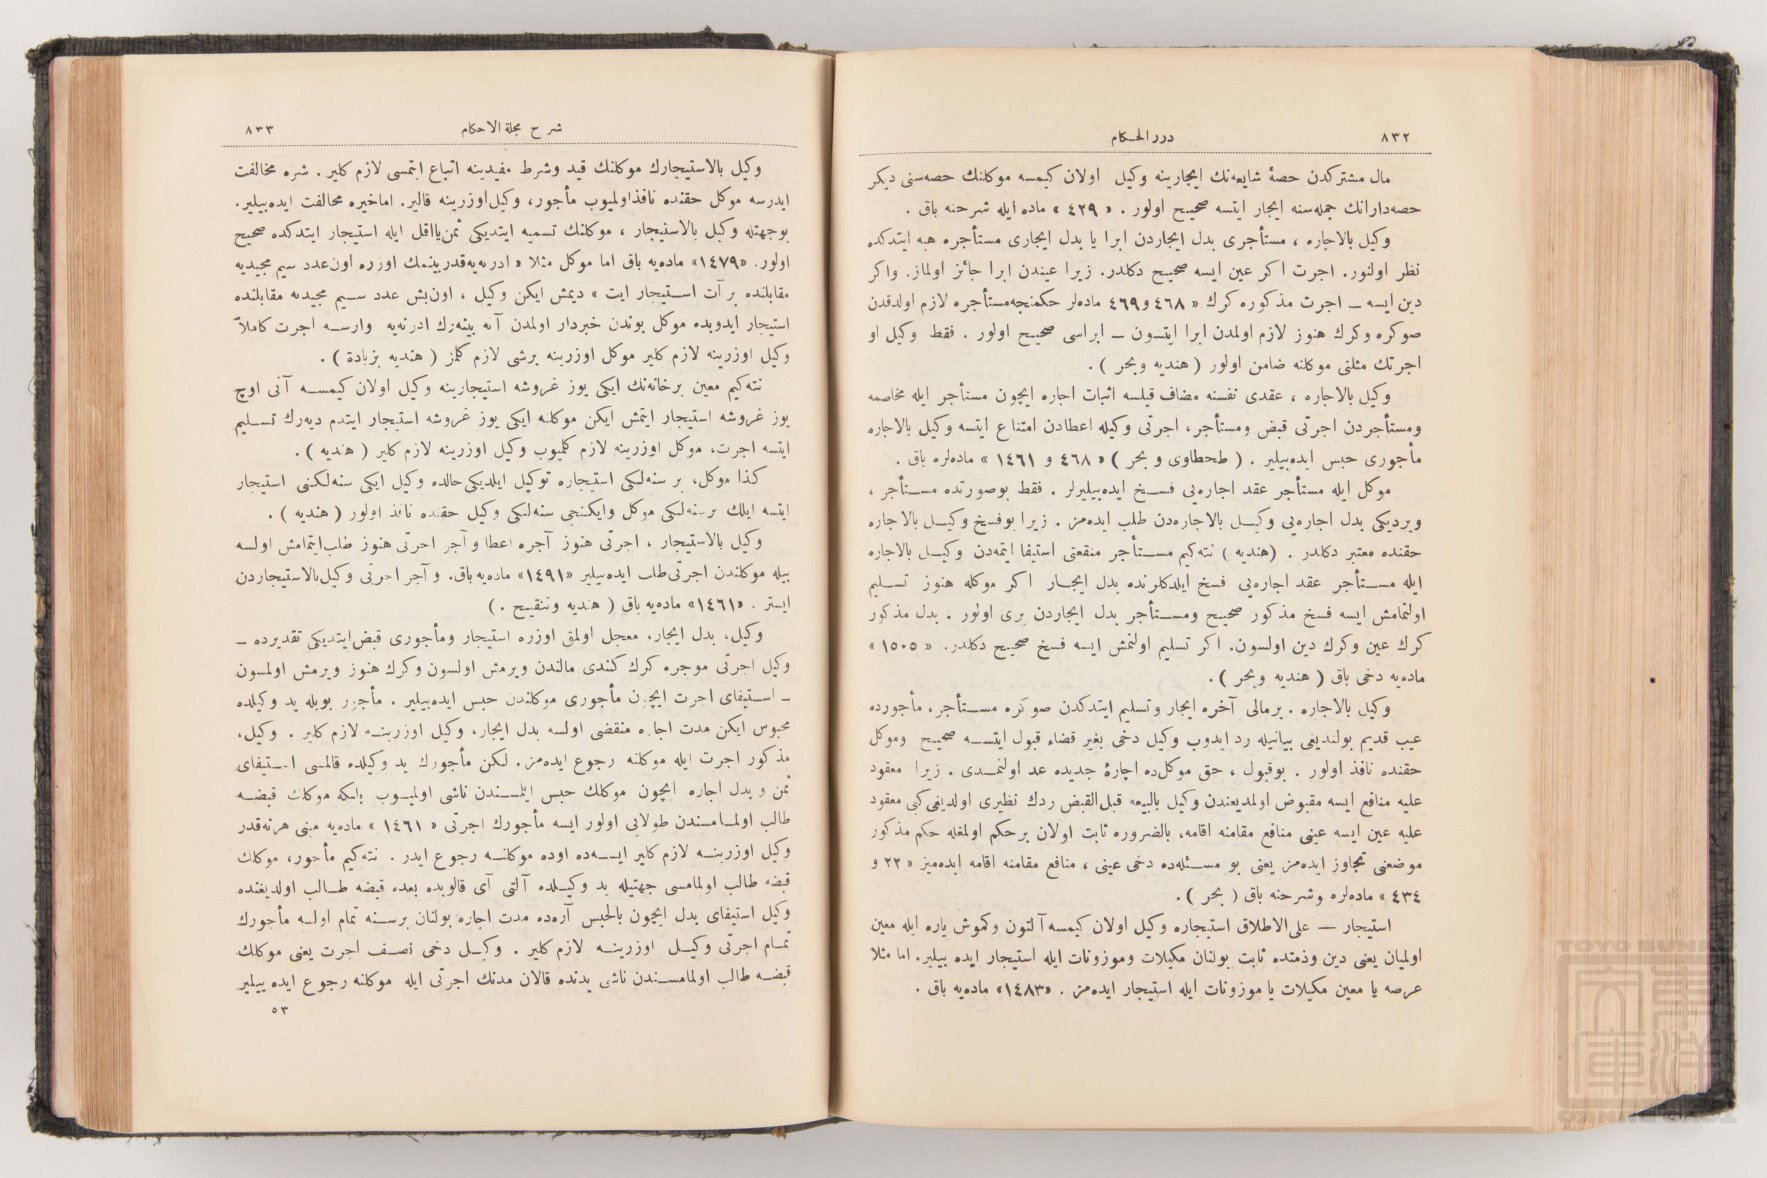 ٨٣٢
درر الحكام
مال مشتركدن حصهٔ شايعه‌نك ايجارينه وكيل اولان كيمسه موكلنك حصه‌سنى ديكر
حصه‌دارانك جمله‌سنه ايجار ايتسه صحيح اولور . « ٤٢٩ » ماده ايله شرحنه باق .
وكيل بالاجاره ، مستأجرى بدل ايجاردن ابرا يا بدل ايجارى مستأجره هبه ايتدكده
نظر اولنور. اجرت اكر عين ايسه صحيح دكلدر. زيرا عيندن ابرا جائز اولماز. واكر
دين ايسه ـ اجرت مذكوره كرك « ٤٦٨ و ٤٦٩ ماده‌لر حكمنجه مستأجره لازم اولدقدن
صوكره وكرك هنوز لازم اولمدن ابرا ايتسون ـ ابراسى صحيح اولور . فقط وكيل او
اجرتك مثلنى موكلنه ضامن اولور ( هنديه وبحر ) .
وكيل بالاجاره ، عقدى نفسنه مضاف قيلسه اثبات اجاره ايچون مستأجر ايله مخاصمه
ومستأجردن اجرتى قبض ومستأجر، اجرتى وكيله اعطادن امتناع ايتسه وكيل بالاجاره
مأجورى حبس ايده‌بيلير . ( طحطاوى و بحر ) « ٤٦٨ و ١٤٦١ » ماده‌لره باق .
موكل ايله مستأجر عقد اجاره‌يى فسخ ايده‌بيليرلر . فقط بوصورتده مستأجر ،
ويرديكى بدل اجاره‌يى وكيل بالاجاره‌دن طلب ايده‌مز . زيرا بوفسخ وكيل بالاجاره
حقنده معتبر دكلدر . (هنديه) نته‌كيم مستأجر منفعتى استيفا ايتمه‌دن وكيل بالاجاره
ايله مستأجر عقد اجاره‌يى فسخ ايلدكلرنده بدل ايجار اكر موكله هنوز تسليم
اولنمامش ايسه فسخ مذكور صحيح ومستأجر بدل ايجاردن برى اولور . بدل مذكور
كرك عين وكرك دين اولسون. اكر تسليم اولنمش ايسه فسخ صحيح دكلدر. « ١٥٠٥ »
ماده‌يه دخى باق ( هنديه وبحر ) .
وكيل بالاجاره . برمالى آخره ايجار وتسليم ايتدكدن صوكره مستأجر، مأجورده
عيب قديم بولنديغى بيانيله رد ايدوب وكيل دخى بغير قضاء قبول ايتسه صحيح وموكل
حقنده نافذ اولور . بوقبول ، حق موكل‌ده اجارهٔ جديده عد اولنمدى . زيرا معقود
عليه منافع ايسه مقبوض اولمديغندن وكيل بالبيعه قبل‌القبض ردك نظيرى اولديغى كى معقود
عليه عين ايسه عينى منافع مقامنه اقامه، بالضروره ثابت اولان برحكم اولمغله حكم مذكور
موضعنى تجاوز ايده‌مز يعنى بو مسئله‌ده دخى عينى ، منافع مقامنه اقامه ايده‌ميز « ٢٢ و
٤٣٤ » ماده‌لره وشرحنه باق ( بحر ) .
استيجار — على‌الاطلاق استيجاره وكيل اولان كيمسه آلتون وكموش پاره ايله معين
اولميان يعنى دين وذمتده ثابت بولنان مكيلات وموزونات ايله استيجار ايده بيلير. اما مثلا
عرصه يا معين مكيلات يا موزونات ايله استيجار ايده‌مز . «١٤٨٣» ماده‌يه باق .
شرح مجلة الاحكام
٨٣٣
وكيل بالاستيجارك موكلنك قيد وشرط مفيدينه اتباع ايتمسى لازم كلير . شره مخالفت
ايدرسه موكل حقنده نافذ اولميوب مأجور، وكيل اوزرينه قالير. اما خيره مخالفت ايده‌بيلير.
بوجهتله وكيل بالاستيجار ، موكلنك تسميه ايتديكى ثمن‌يا اقل ايله استيجار ايتدكده صحيح
اولور. «١٤٧٩» ماده‌يه باق اما موكل مثلا « ادرنه‌يه قدر بينمك اوزره اون عدد سيم مجيديه
مقابلنده بر آت استيجار ايت » ديمش ايكن وكيل ، اون‌بش عدد سيم مجيديه مقابلنده
استيجار ايدوبده موكل بوندن خبردار اولمدن آنه بينه‌رك ادرنه‌يه وارسه اجرت كاملاً
وكيل اوزرينه لازم كلير موكل اوزرينه برشى لازم كلمز ( هنديه بزيادة ) .
نته‌كيم معين برخانه‌نك ايكى يوز غروشه استيجارينه وكيل اولان كيمسه آنى اوچ
يوز غروشه استيجار ايتمش ايكن موكلنه ايكى يوز غروشه استيجار ايتدم ديه‌رك تسليم
ايتسه اجرت، موكل اوزرينه لازم كلميوب وكيل اوزرينه لازم كلير ( هنديه ) .
كذا موكل، بر سنه‌لكى استيجاره توكيل ايلديكى حالده وكيل ايكى سنه‌لكنى استيجار
ايتسه ايلك برسنه‌لكى موكل وايكنجى سنه‌لكى وكيل حقنده نافذ اولور ( هنديه ) .
وكيل بالاستيجار ، اجرتى هنوز آجره اعطا و آجر اجرتى هنوز طلب‌ايتمامش اولسه
بيله موكلندن اجرتى طلب ايده‌بيلير «١٤٩١» ماده‌يه باق. و آجر اجرتى وكيل‌بالاستيجاردن
ايستر . «١٤٦١» ماده‌يه باق ( هنديه وتنقيح . )
وكيل، بدل ايجار، معجل اولمق اوزره استيجار ومأجورى قبض‌ايتديكى تقديرده ـ
وكيل اجرتى موجره كرك كندى مالندن ويرمش اولسون وكرك هنوز ويرمش اولمسون
ـ استيفاى اجرت ايچون مأجورى موكلندن حبس ايده‌بيلير . مأجور بويله يد وكيلده
محبوس ايكن مدت اجاره منقضى اولسه بدل ايجار، وكيل اوزرينه لازم كلير . وكيل،
مذكور اجرت ايله موكلنه رجوع ايده‌مز. لكن مأجورك يد وكيلده قالمسى استيفاى
ثمن و بدل اجاره ايچون موكلك حبس ايلمسندن ناشى اولميوب بلكه موكلك قبضه
طالب اولمامسندن طولايى اولور ايسه مأجورك اجرتى « ١٤٦١ » ماده‌يه مبنى هرنه‌قدر
وكيل اوزرينه لازم كلير ايسه‌ده اوده موكلنه رجوع ايدر . نته‌كيم مأجور، موكلك
قبضه طالب اولمامسى جهتيله يد وكيلده آلتى آى قالوبده بعده قبضه طالب اولديغنده
وكيل استيفاى بدل ايچون بالحبس آره‌ده مدت اجاره بولنان برسنه تمام اولسه مأجورك
تمام اجرتى وكيل اوزرينه لازم كلير . وكيل دخى نصف اجرت يعنى موكلك
قبضه طالب اولمامسندن ناشى يدنده قالان مدتك اجرتى ايله موكلنه رجوع ايده بيلير
٥٣
TOYO BUNKO
東洋文庫